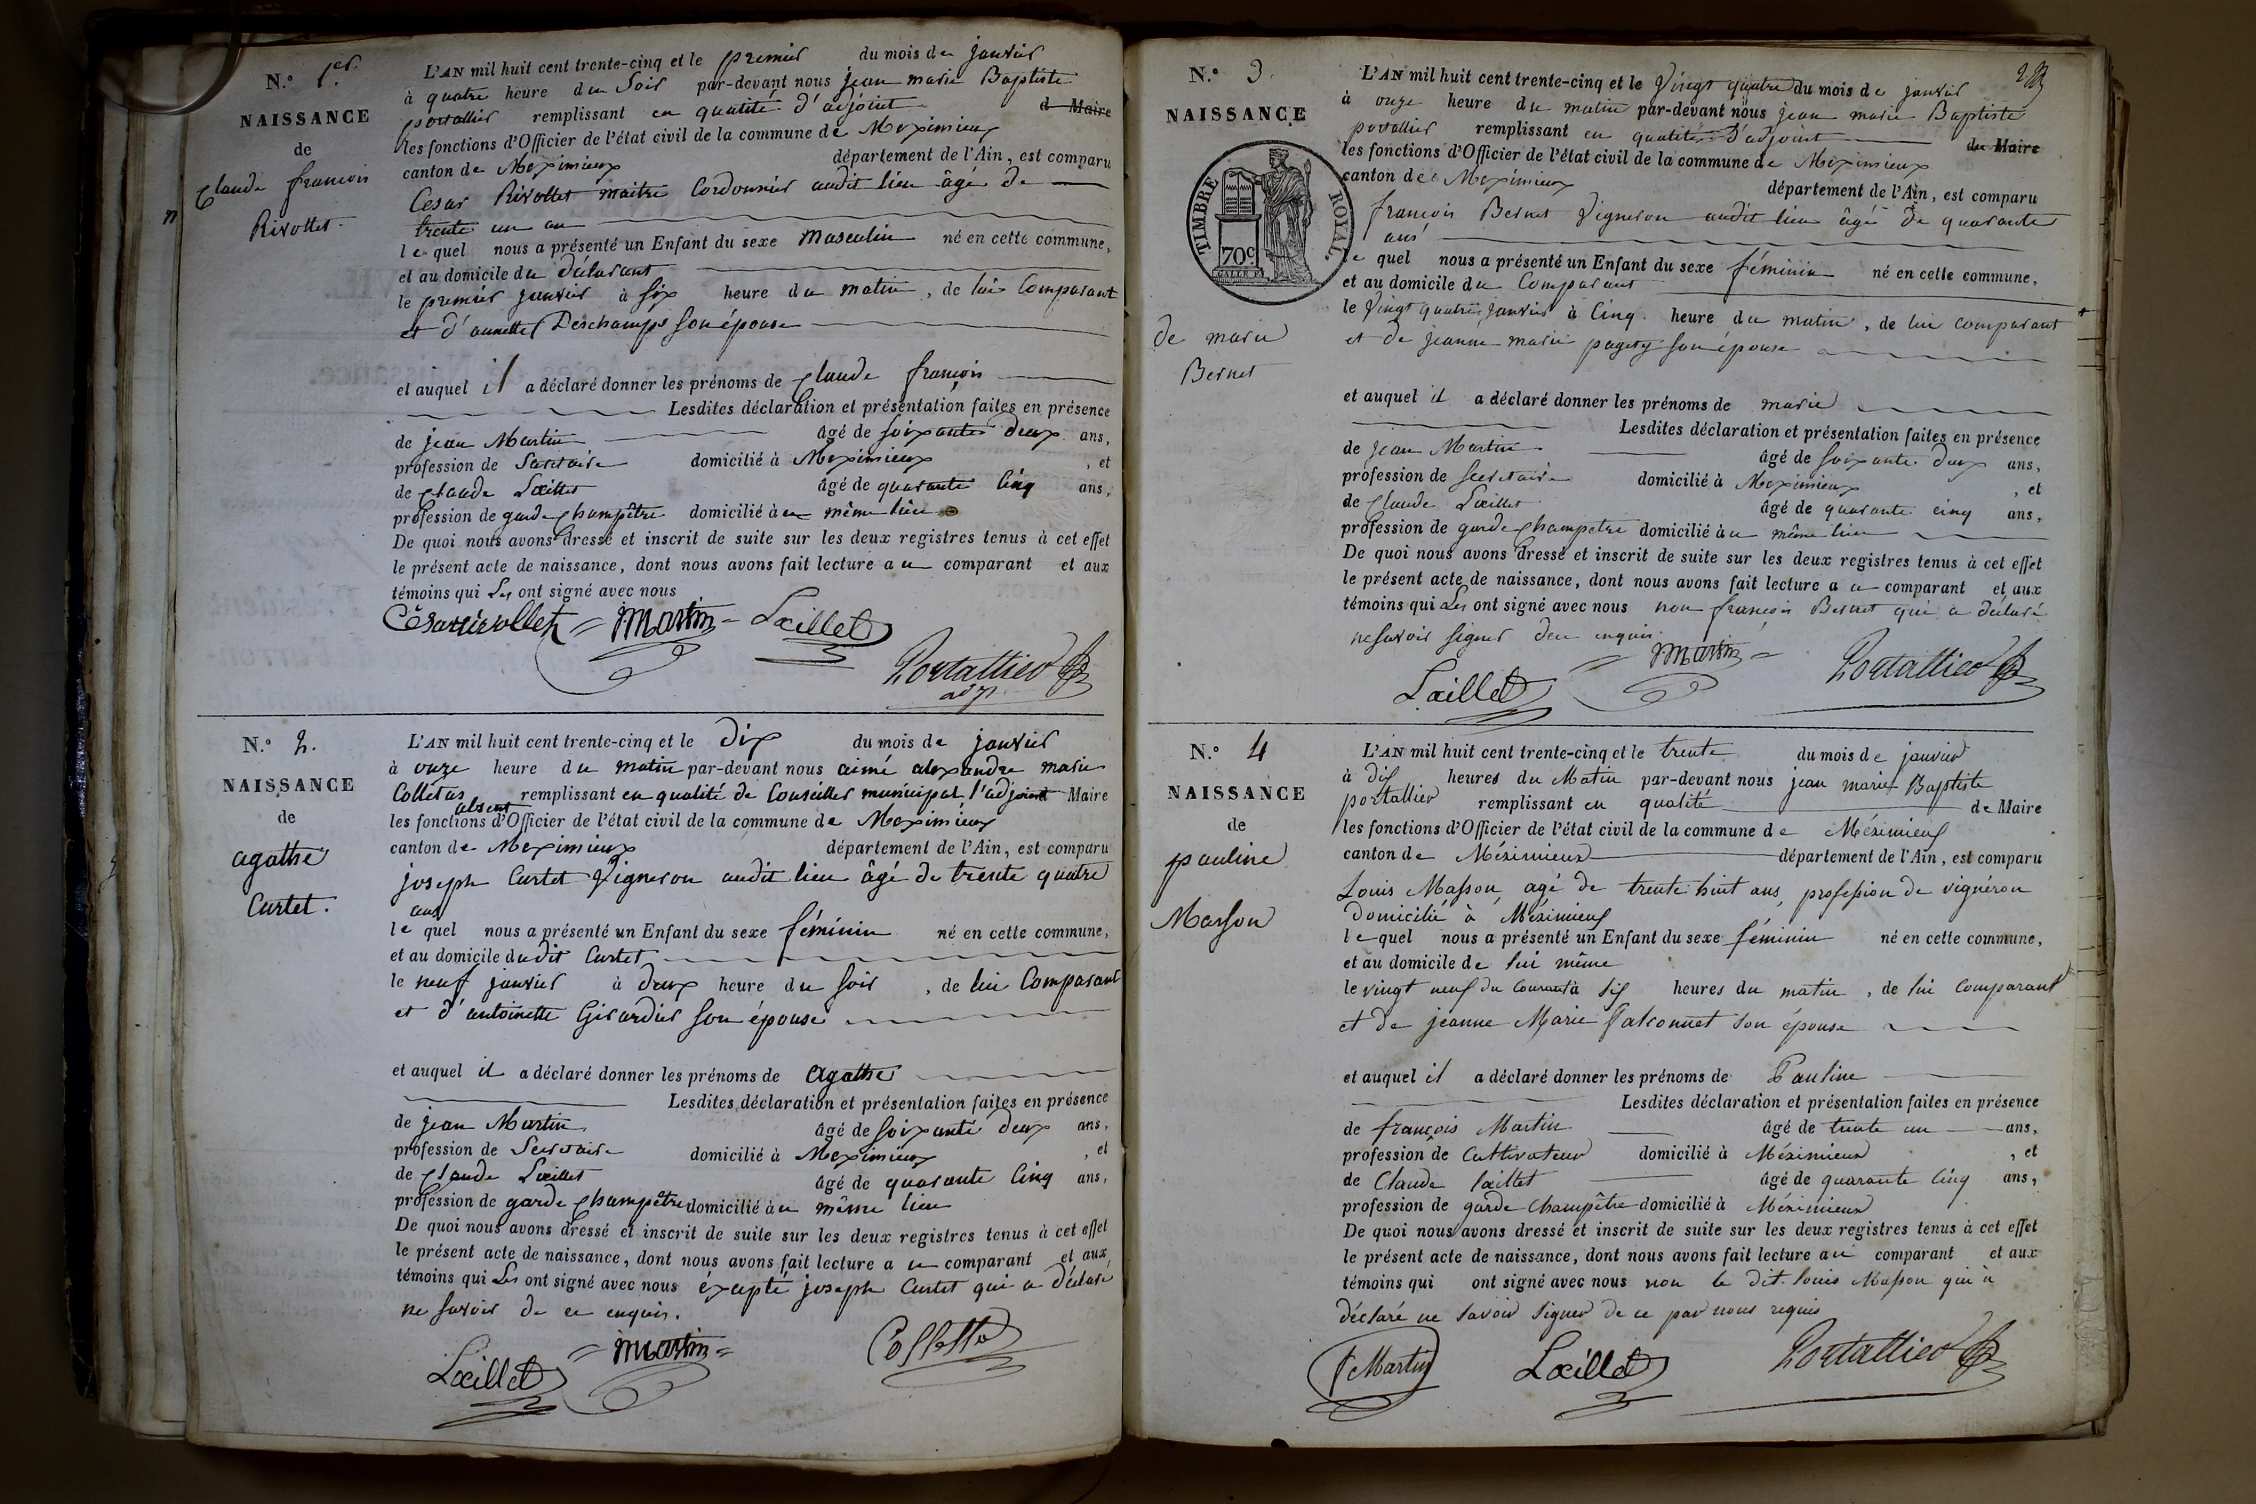 N.º 1er.
NAISSANCE
de
Claude françois
Rivollet.
L'AN mil huit cent trente-cinq et le premier du mois de janvier
à quatre heure du Soir par-devant nous jean marie Baptiste
portallier remplissant en qualité d'adjoint d Maire
les fonctions d'Officier de l'état civil de la commune de Meximieux
canton de Meximieux département de l'Ain, est comparu
Cesar Rivollet maitre Cordonnier audit lieu âgé de
trente un an
le quel nous a présenté un Enfant du sexe Masculin né en cette commune,
et au domicile du déclarant
le premier janvier à six heure du matin, de lui Comparant
et d'annette Deschamps son épouse
et auquel il a déclaré donner les prénoms de Claude françois
Lesdites déclaration et présentation faites en présence
de jean Martin âgé de soixante deux ans,
profession de Secretaire domicilié à Meximieux, et
de Claude Lœillet âgé de quarante Cinq ans,
profession de garde Champêtre domicilié au même lieu
De quoi nous avons dressé et inscrit de suite sur les deux registres tenus à cet effet
le présent acte de naissance, dont nous avons fait lecture au comparant et aux
témoins qui Les ont signé avec nous
Césarrivollet = Martin = Lœillet
Portallier
adj
N.º 2.
NAISSANCE
de
agathe
Curtet.
L'AN mil huit cent trente-cinq et le dix du mois de janvier
à onze heure du matin par-devant nous aimé alexandre marie
Colletas remplissant en qualité de Conseiller municipal l'adjoint Maire
absent
les fonctions d'Officier de l'état civil de la commune de Meximieux
canton de Meximieux département de l'Ain, est comparu
joseph Curtet Vigneron audit lieu âgé de trente quatre
ans
le quel nous a présenté un Enfant du sexe féminin né en cette commune,
et au domicile dudit Curtet
le neuf janvier à deux heure du soir, de lui Comparant
et d'antoinette Girardier son épouse
et auquel il a déclaré donner les prénoms de agathe
Lesdites déclaration et présentation faites en présence
de jean Martin âgé de soixante deux ans,
profession de Secretaire domicilié à Meximieux, et
de Claude Lœillet âgé de quarante Cinq ans,
profession de garde Champêtre domicilié au même lieu
De quoi nous avons dressé et inscrit de suite sur les deux registres tenus à cet effet
le présent acte de naissance, dont nous avons fait lecture au comparant et aux
témoins qui Les ont signé avec nous éxcepté joseph Curtet qui a déclaré
ne savoir de ce enquis.
Lœillet = Martin =
N.º 3.
NAISSANCE
TIMBRE ROYAL
70c
de marie
Bernet
L'AN mil huit cent trente-cinq et le Vingt quatre du mois de janvier
à onze heure du matin par-devant nous jean marie Baptiste
portallier remplissant en qualité d'adjoint du Maire
les fonctions d'Officier de l'état civil de la commune de Meximieux
canton de Meximieux département de l'Ain, est comparu
françois Bernet Vigneron audit lieu âgé de quarante
ans
le quel nous a présenté un Enfant du sexe féminin né en cette commune,
et au domicile du Comparant
le Vingt quatre janvier à Cinq heure du matin, de lui comparant
et de jeanne marie son épouse
et auquel il a déclaré donner les prénoms de marie
Lesdites déclaration et présentation faites en présence
de jean Martin âgé de soixante deux ans,
profession de Secretaire domicilié à Meximieux, et
de Claude Lœillet âgé de quarante cinq ans,
profession de garde Champetre domicilié au même lieu
De quoi nous avons dressé et inscrit de suite sur les deux registres tenus à cet effet
le présent acte de naissance, dont nous avons fait lecture au comparant et aux
témoins qui Les ont signé avec nous non françois Bernet qui a déclaré
ne savoir signer de ce enquis
Lœillet = Martin = Portallier
N.º 4
NAISSANCE
de
pauline
Masson
L'AN mil huit cent trente-cinq et le trente du mois de janvier
à dix heures du Matin par-devant nous jean marie Baptiste
portallier remplissant en qualité de Maire
les fonctions d'Officier de l'état civil de la commune de Méximieux
canton de Méximieux département de l'Ain, est comparu
Louis Masson, agé de trente huit ans, profession de vignéron
Domicilié à Méximieux
le quel nous a présenté un Enfant du sexe féminin né en cette commune,
et au domicile de lui même
le vingt neuf du courant à six heures du matin, de lui Comparant
et de jeanne Marie falconnet son épouse
et auquel il a déclaré donner les prénoms de Pauline
Lesdites déclaration et présentation faites en présence
de françois Martin âgé de trente un ans,
profession de Cultivateur domicilié à Méximieux, et
de Claude lœillet âgé de quarante Cinq ans,
profession de garde Champêtre domicilié à Méximieux
De quoi nous avons dressé et inscrit de suite sur les deux registres tenus à cet effet
le présent acte de naissance, dont nous avons fait lecture au comparant et aux
témoins qui ont signé avec nous non le dit Louis Masson qui a
déclaré ne savoir signer de ce par nous requis
f Martin Lœillet Portallier